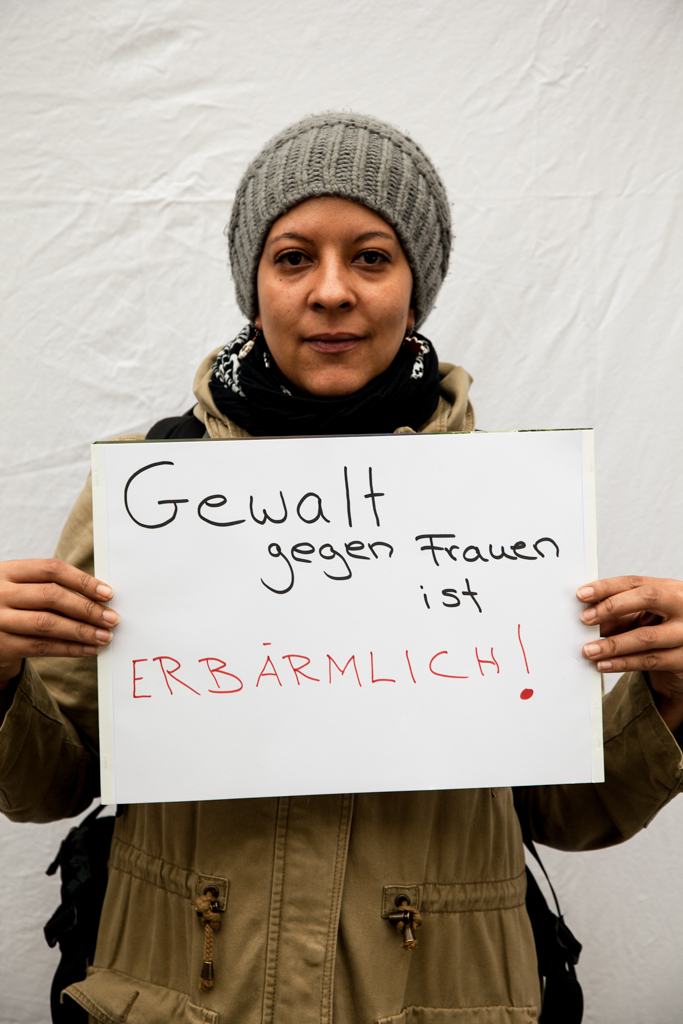 Gewalt
gegen Frauen
ist
ERBÄRMLICH!